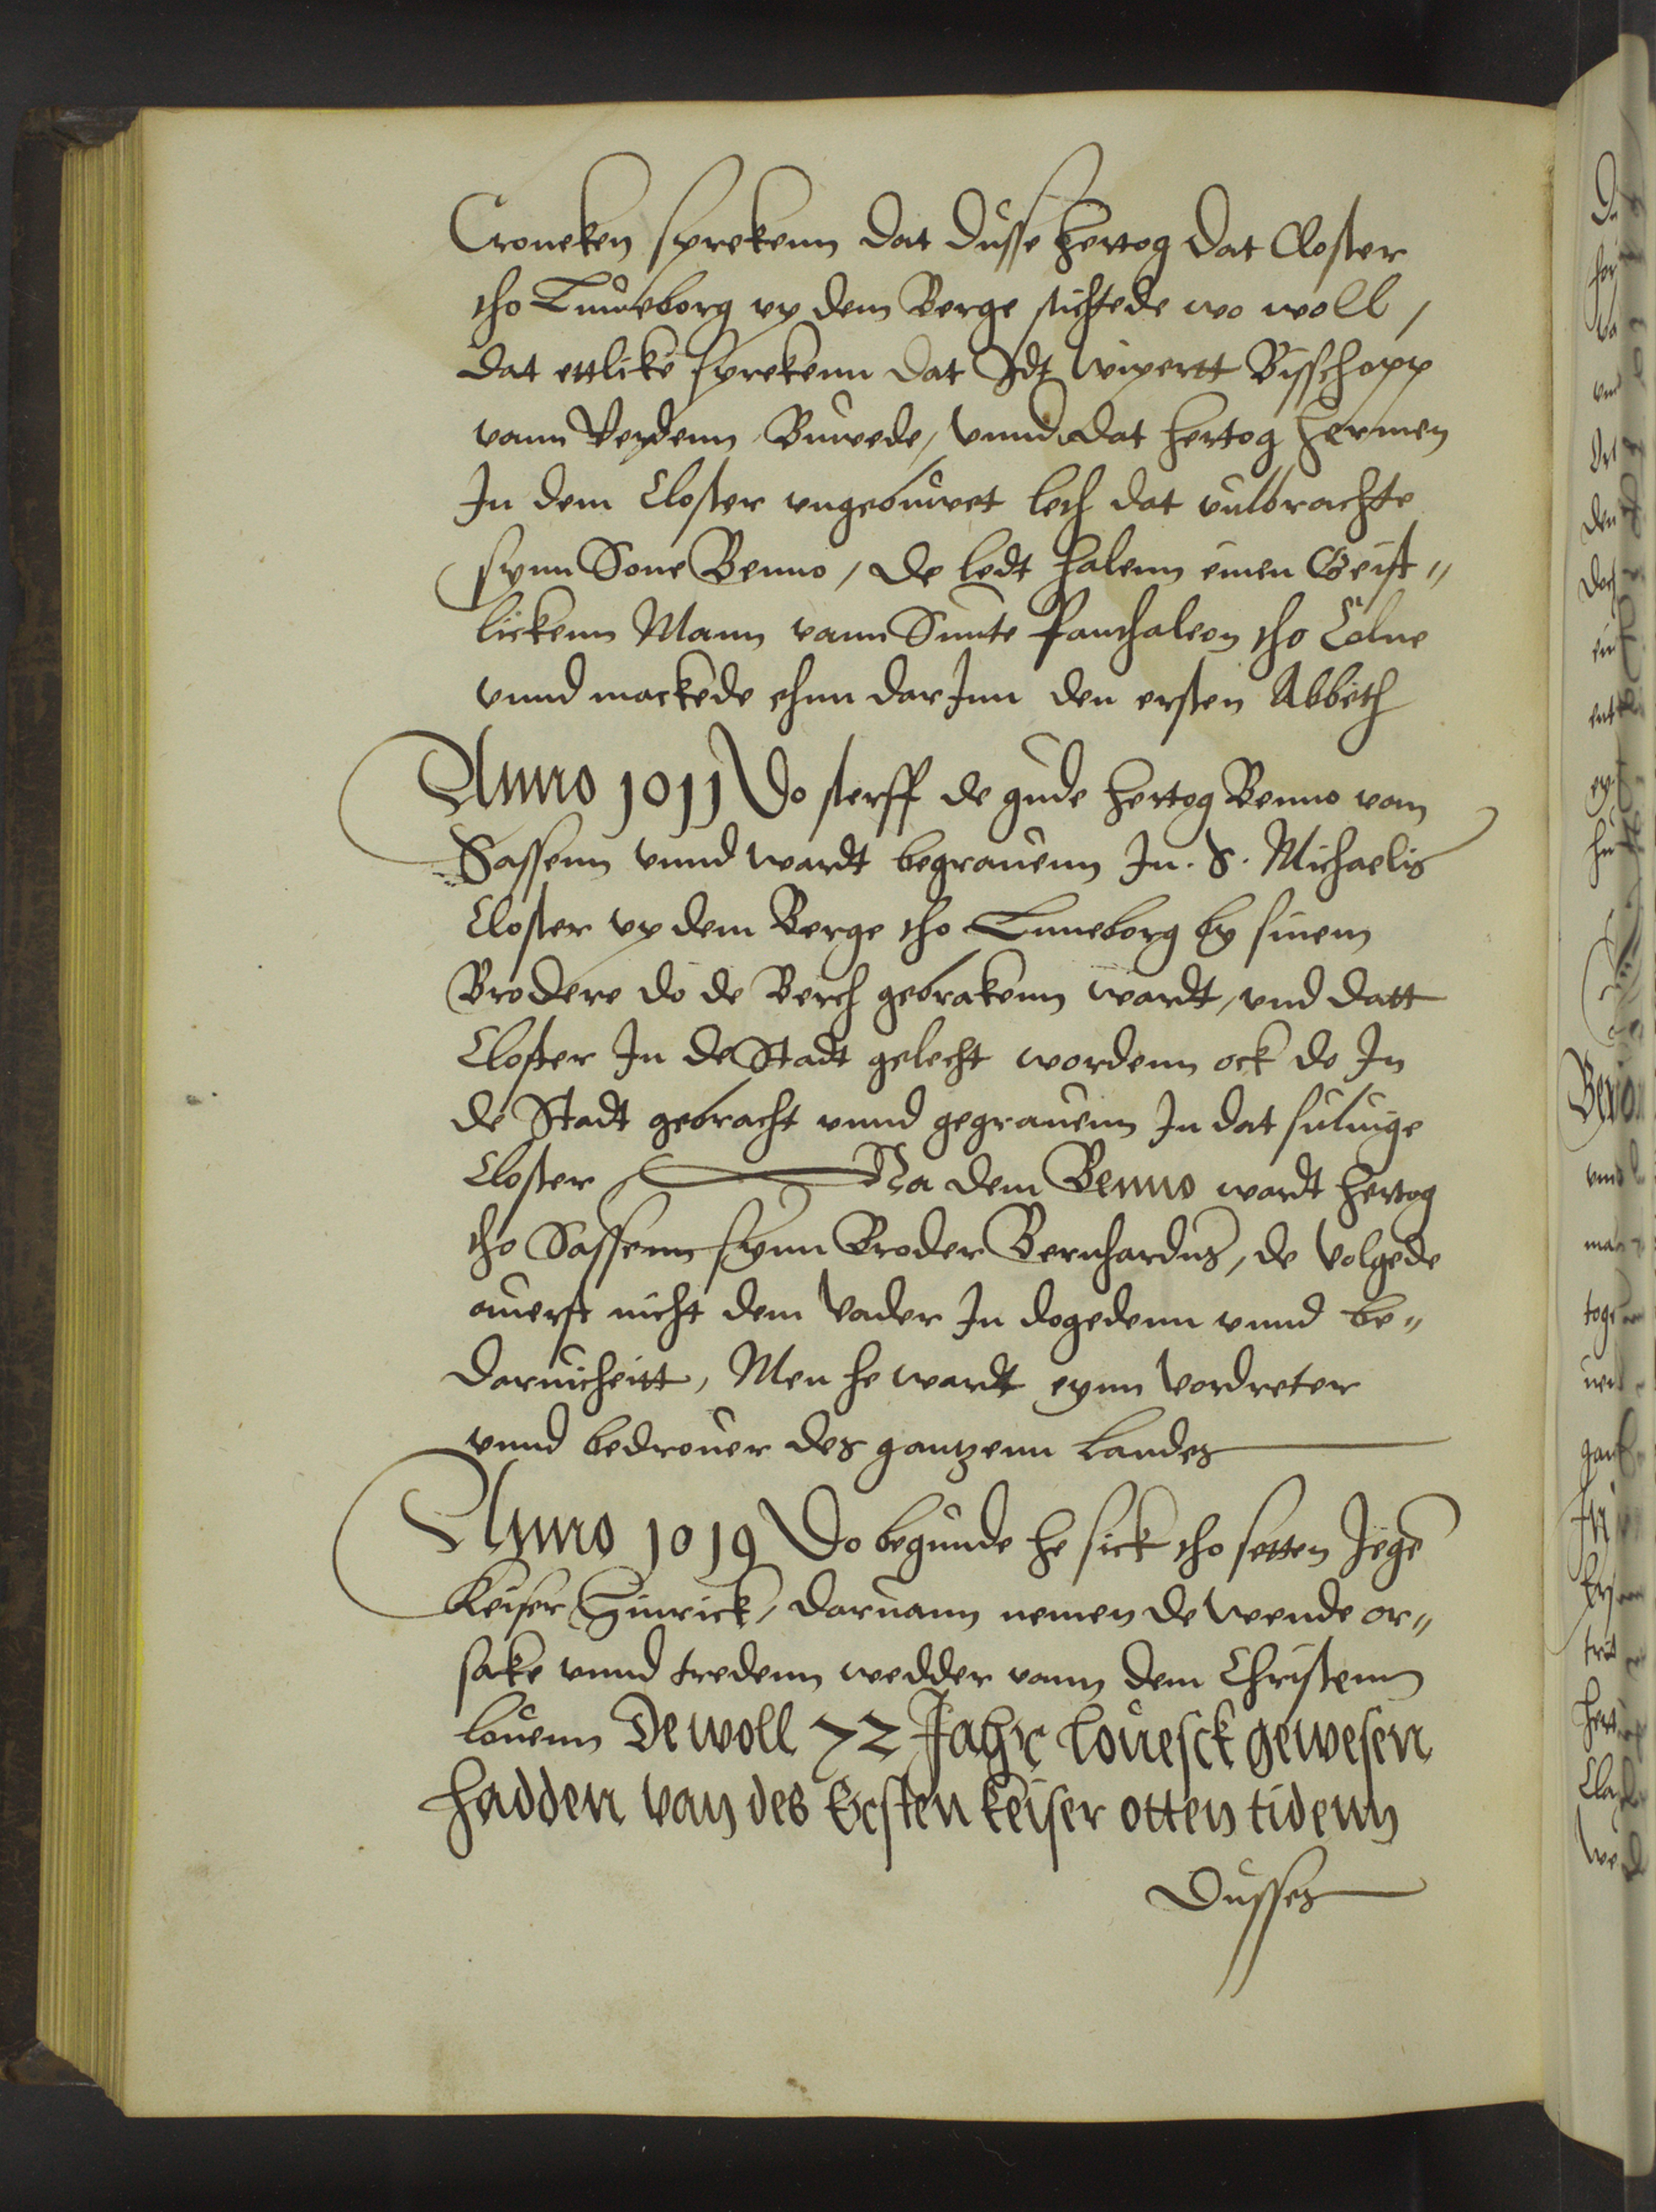 Croneken sprekenn dat dusse hertog dat Closter
tho Luneborg vp dem Berge stichtede wo woll,
dat ettlike sprekenn dat Idt wipertt Bisschopp
vann Verdenn Buwede, vnnd dat hertog hermen
In dem Closter vngebuwet leth dat vulbrachte
synn Sone Benno, de ledt halenn einen Geist„
lickenn Mann vann Sunte Panthaleon tho Cölne
vnnd mackede ehnn darInn den ersten Abbeth
Anno 1011 Do sterff de gude hertog Benno van
Sassenn vnnd wardt begrauenn In. S. Michaelis
Closter vp dem Berge tho Luneborg by sinem
Brodere do de Berch gebrakenn wardt, vnd datt
Closter In de Stadt gelecht wordenn ock do In
de Stadt gebracht vnnd gegrauenn In dat suluige
Closter Na dem Benno wardt hertog
tho Sassenn synn Broder Bernhardus, de volgede
auerst nicht dem vader In dogedenn vnnd be„
daruicheitt, Men he wardt eynn vordreter
vnnd bedrouer des gantzenn Landes
Anno 1019 Do begunde he sick tho setten Jegen
Keiser Hinrick, daruann nemen de wende or„
sake vnnd tredenn wedder vann dem Christenn
louenn De woll 72 Jahr louesck gewesen
hadden van des Ersten keiser otten tidenn
Dusses